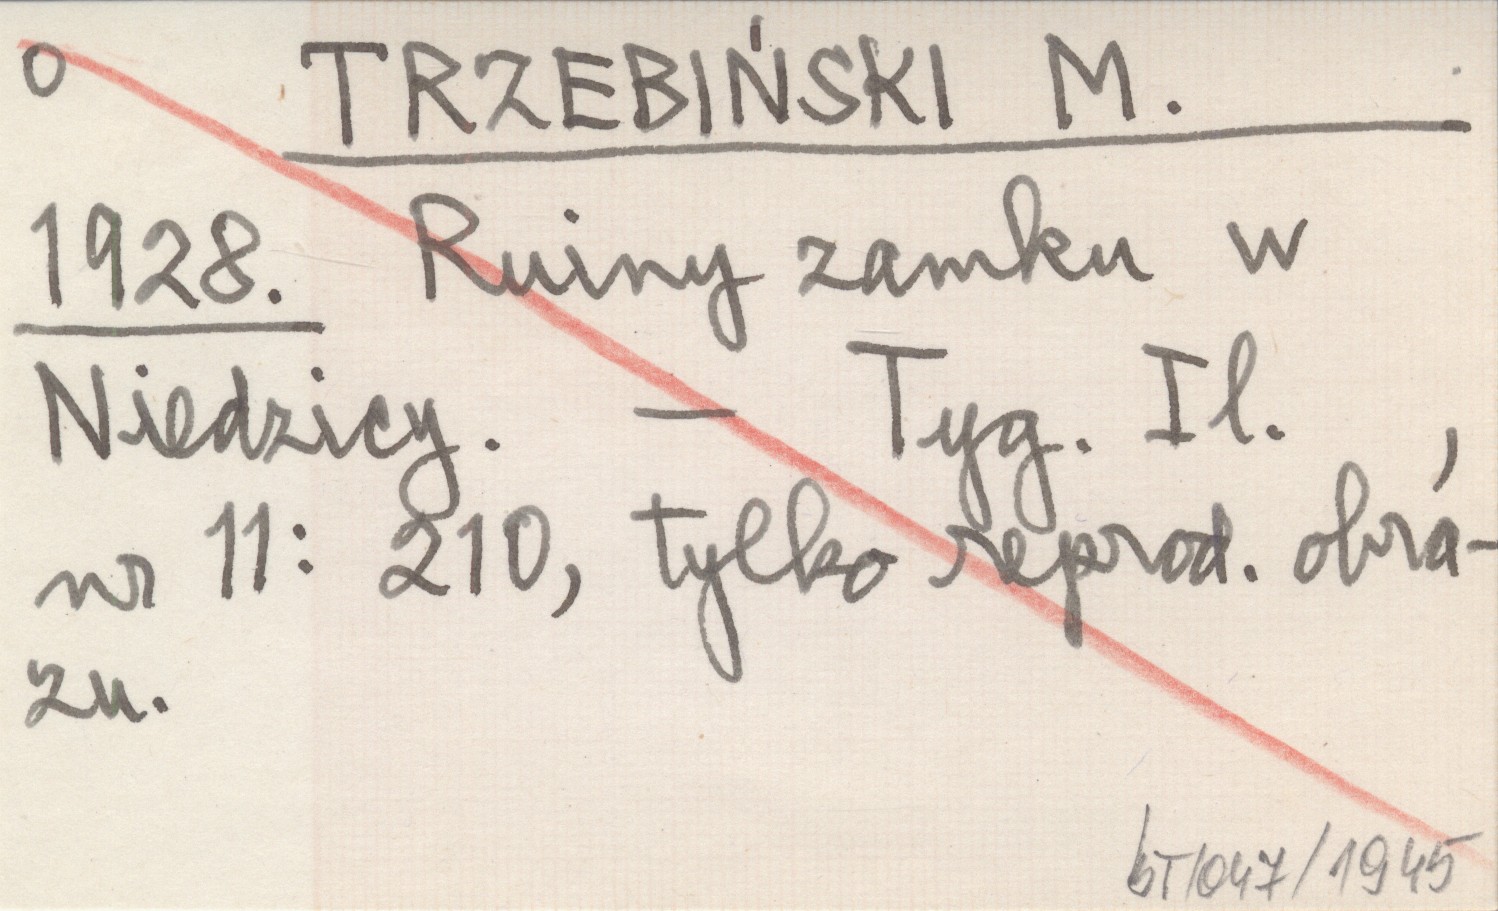 o TRZEBIŃSKI M.
1928. Ruiny zamku w
Niedzicy. — Tyg. Il. ,
nr 11: 210, tylko reprod. obra-
zu.
bT/047/1945